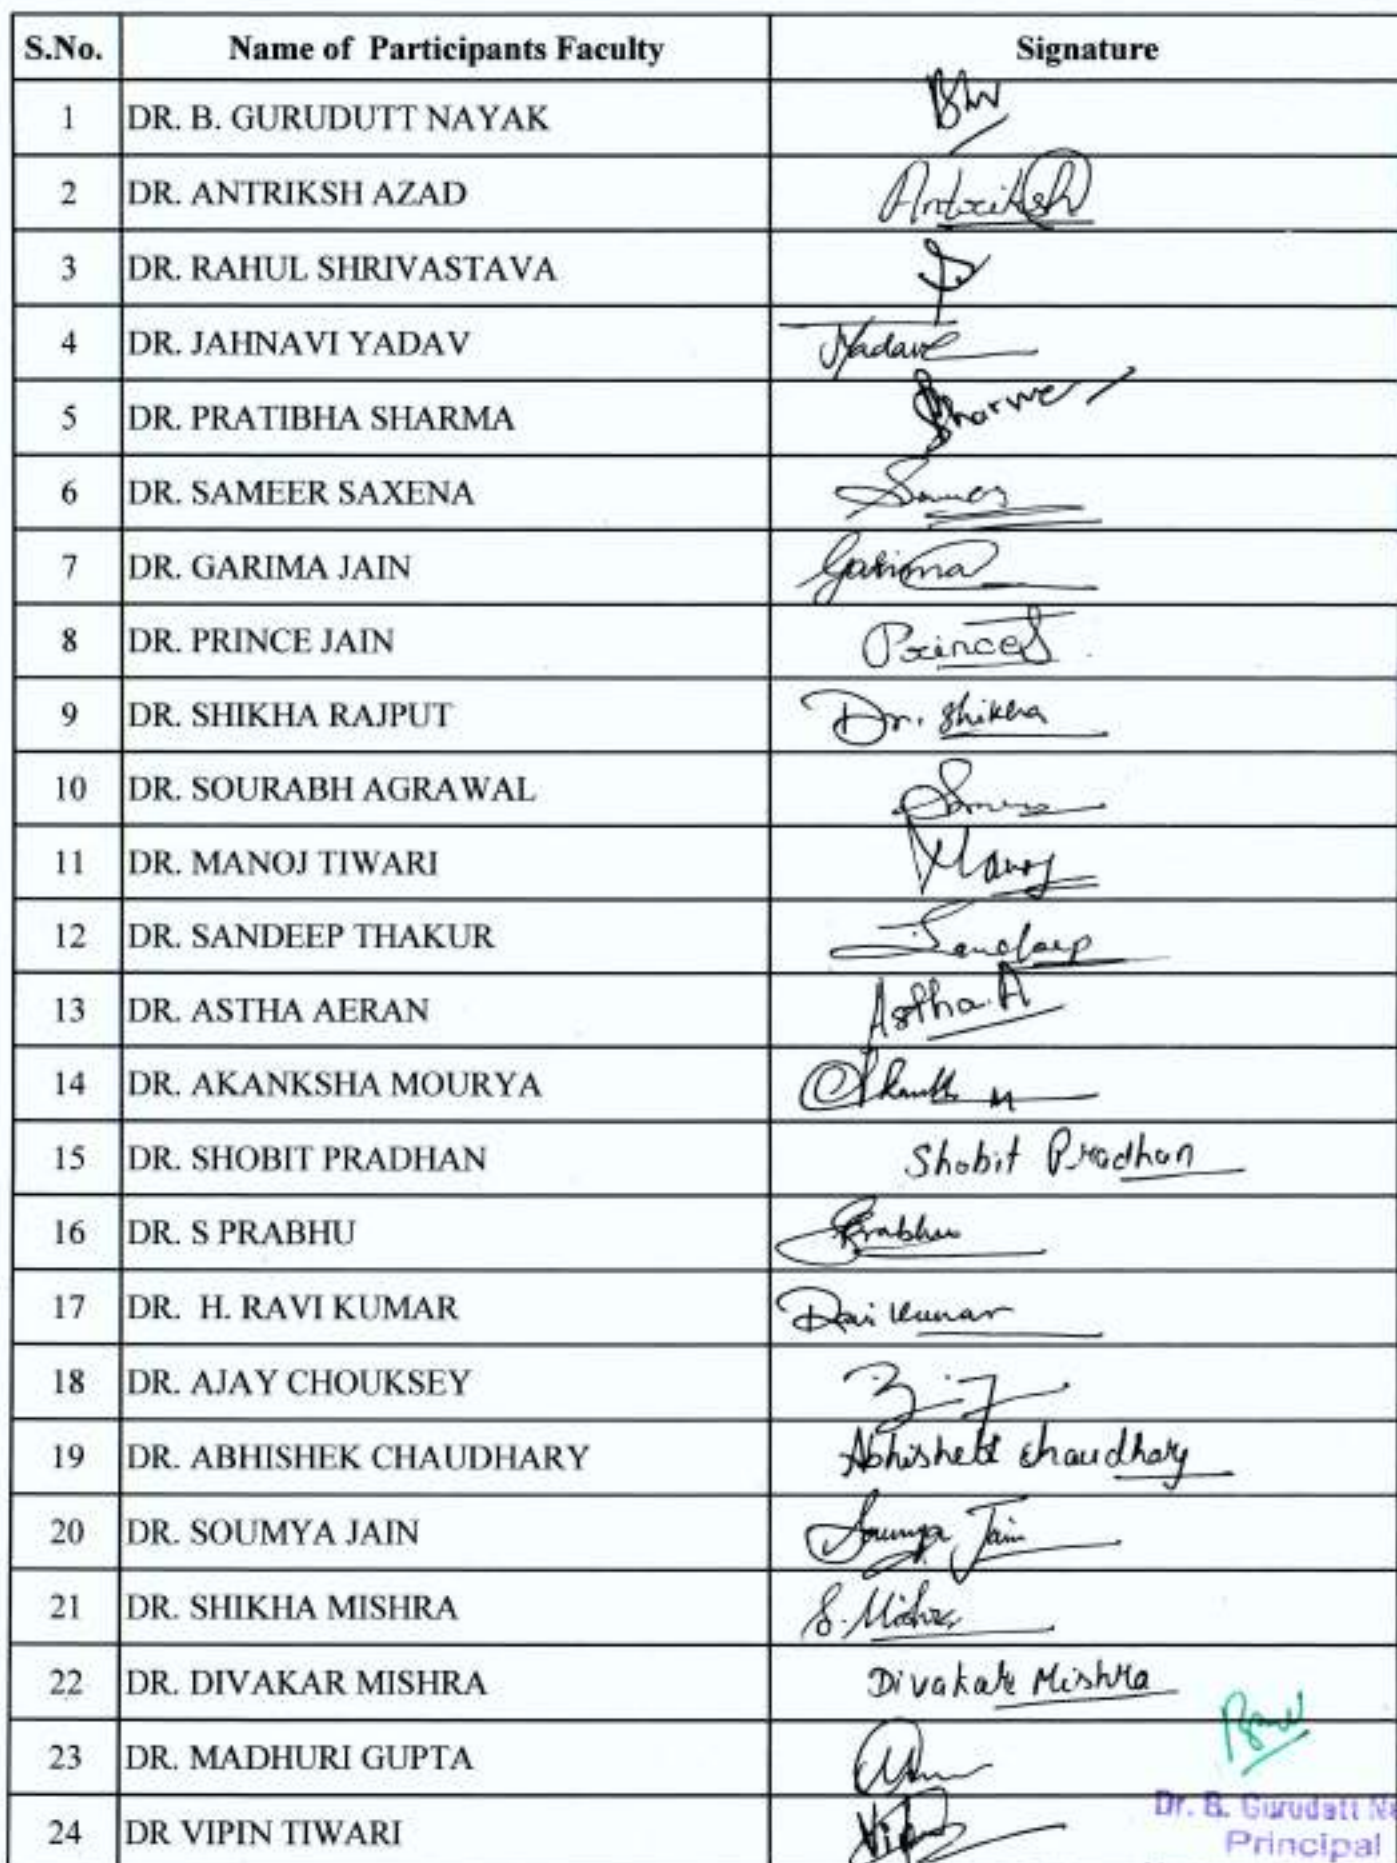 S.No. Name of Participants Faculty Signature
1 DR. B. GURUDUTT NAYAK
2 DR. ANTRIKSH AZAD Antriksh
3 DR. RAHUL SHRIVASTAVA
4 DR. JAHNAVI YADAV
5 DR. PRATIBHA SHARMA
6 DR. SAMEER SAXENA
7 DR. GARIMA JAIN Garima
8 DR. PRINCE JAIN Prince J
9 DR. SHIKHA RAJPUT Dr. Shikha
10 DR. SOURABH AGRAWAL
11 DR. MANOJ TIWARI Manoj
12 DR. SANDEEP THAKUR Sandeep
13 DR. ASTHA AERAN Astha A
14 DR. AKANKSHA MOURYA
15 DR. SHOBIT PRADHAN Shobit Pradhan
16 DR. S PRABHU Prabhu
17 DR. H. RAVI KUMAR Ravi Kumar
18 DR. AJAY CHOUKSEY
19 DR. ABHISHEK CHAUDHARY Abhishek Chaudhary
20 DR. SOUMYA JAIN Soumya Jain
21 DR. SHIKHA MISHRA S. Mishra
22 DR. DIVAKAR MISHRA Divakar Mishra
23 DR. MADHURI GUPTA
Dr. B. Gurudatt
24 DR VIPIN TIWARI
Principal